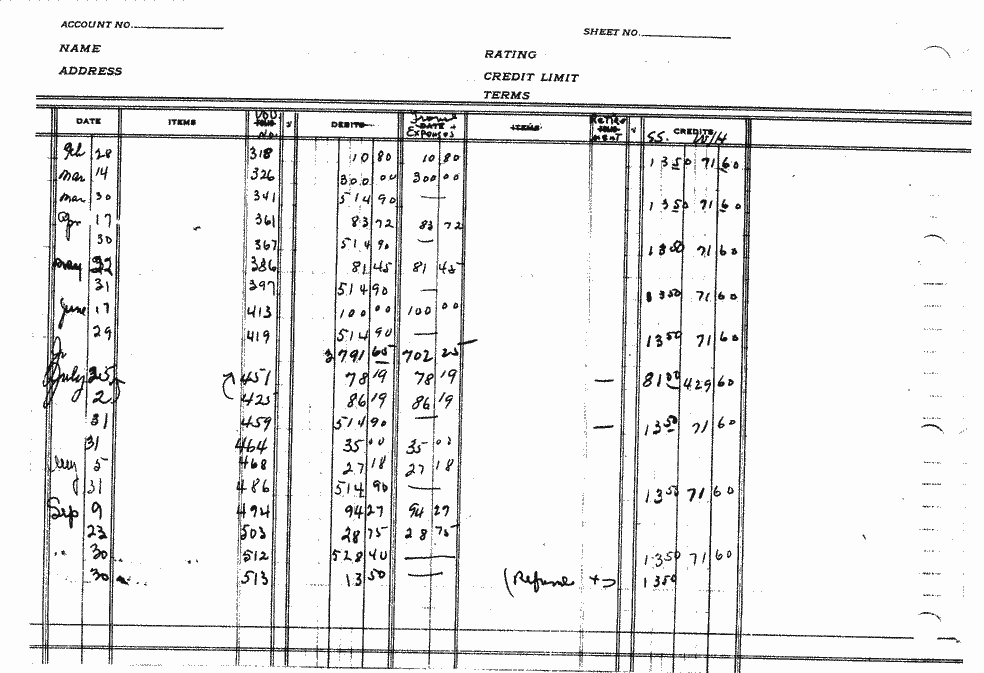 ACCOUNT NO.
SHEET NO.
NAME
RATING
ADDRESS
CREDIT LIMIT
TERMS
DATE ITEMS VOU. NO. DEBITS DATE + EXPENSES ITEMS Retire MENT CREDITS SS. W/H
28 318 10 80 10 80 13 50 71 60
Mar 14 326 300 00 300 00
Mar 30 341 514 90 — 13 50 71 60
Apr 17 361 83 72 83 72
30 367 514 90 — 13 50 71 60
May 386 81 45 81 45
31 397 514 90 — 13 50 71 60
June 17 413 100 00 100 00
29 419 514 90 — 13 50 71 60
3791 65 702 25
July 25 451 78 19 78 19 — 81 00 429 60
2 425 86 19 86 19
31 459 514 90 — — 13 50 71 60
31 464 35 00 35 00
5 468 27 18 27 18
31 486 514 90 — 13 50 71 60
Sep 9 494 94 27 94 27
23 503 28 75 28 75
" 30 512 528 40 — 13 50 71 60
30 513 13 50 — 13 50